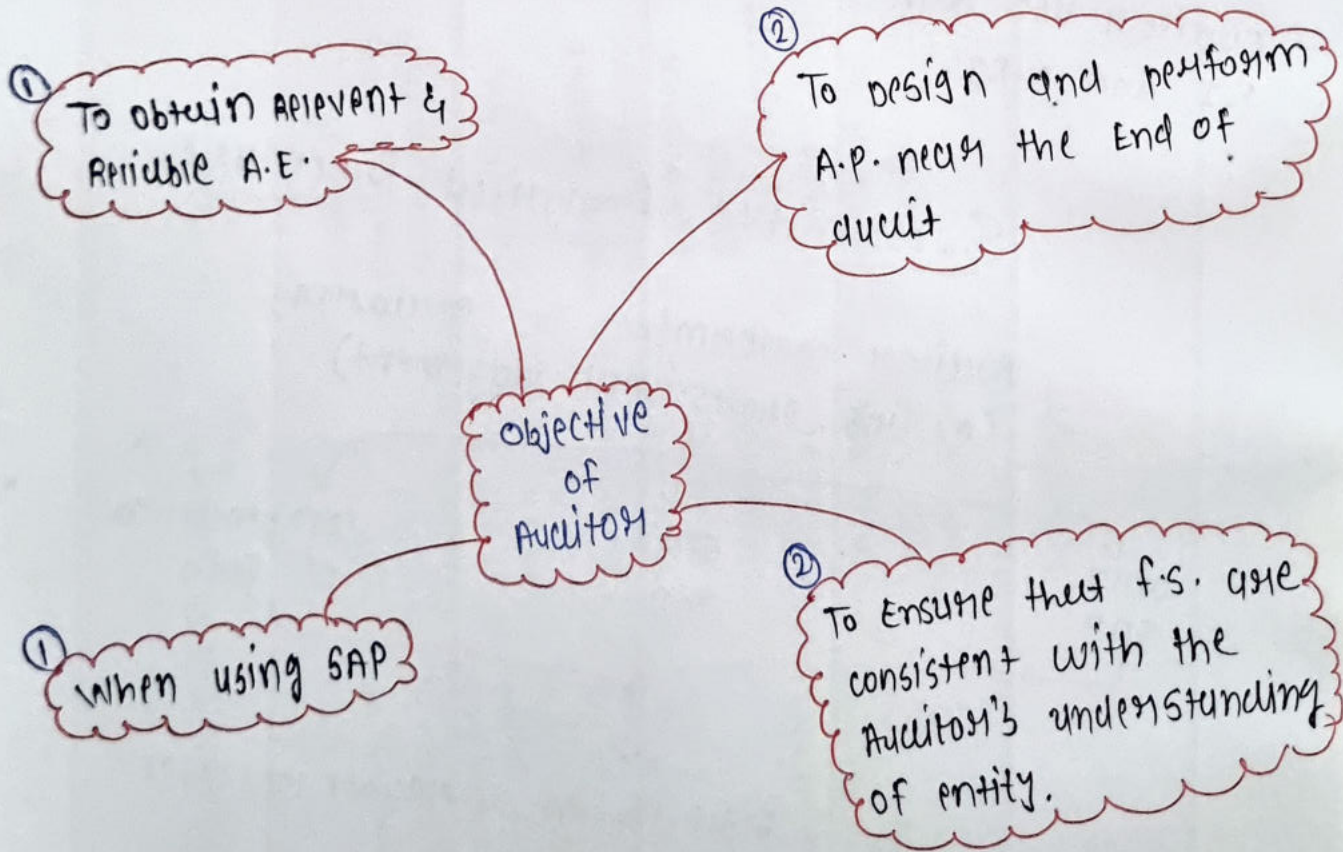 ①
To obtain Relevent &
Reliable A.E.
②
To Design and perform
A.P. near the End of
audit
Objective
of
Auditor
①
When using SAP
②
To Ensure that f.s. are
consistent with the
Auditor's understanding
of entity.